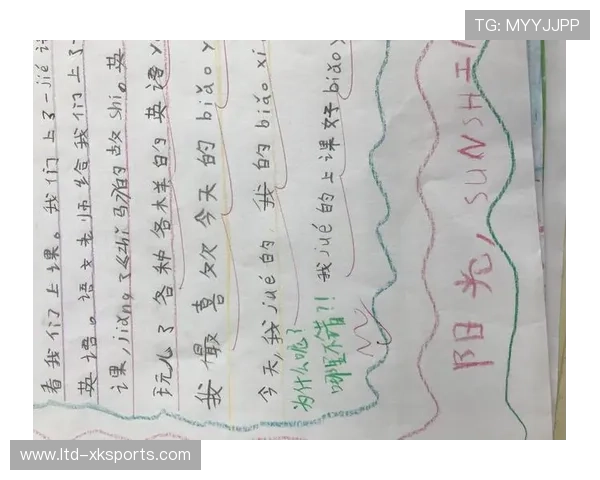 TG: MYYJJPP
看我们上课。我们上了一jié
英语。语文老师给我们上了
课,jiǎng了《zhī马》的故shi。英
玩儿了各种各样的英语
我最喜欢今天的biǎo
今天,我jué的,我的biǎo xi
为什么呢?
我jué的上课好biǎo
哪里不错?!
阳光, SUNSHI
www.ltd-xksports.com